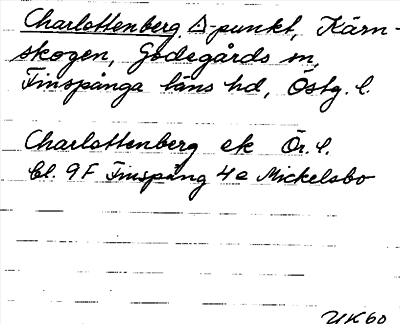 Charlottenberg △-punkt, Kärn-
skogen, Godegårds sn,
Finspånga läns hd, Östg. l.
Charlottenberg ek Ör. l.
bl. 9F Finspång 4e Mickelsbo
UK60